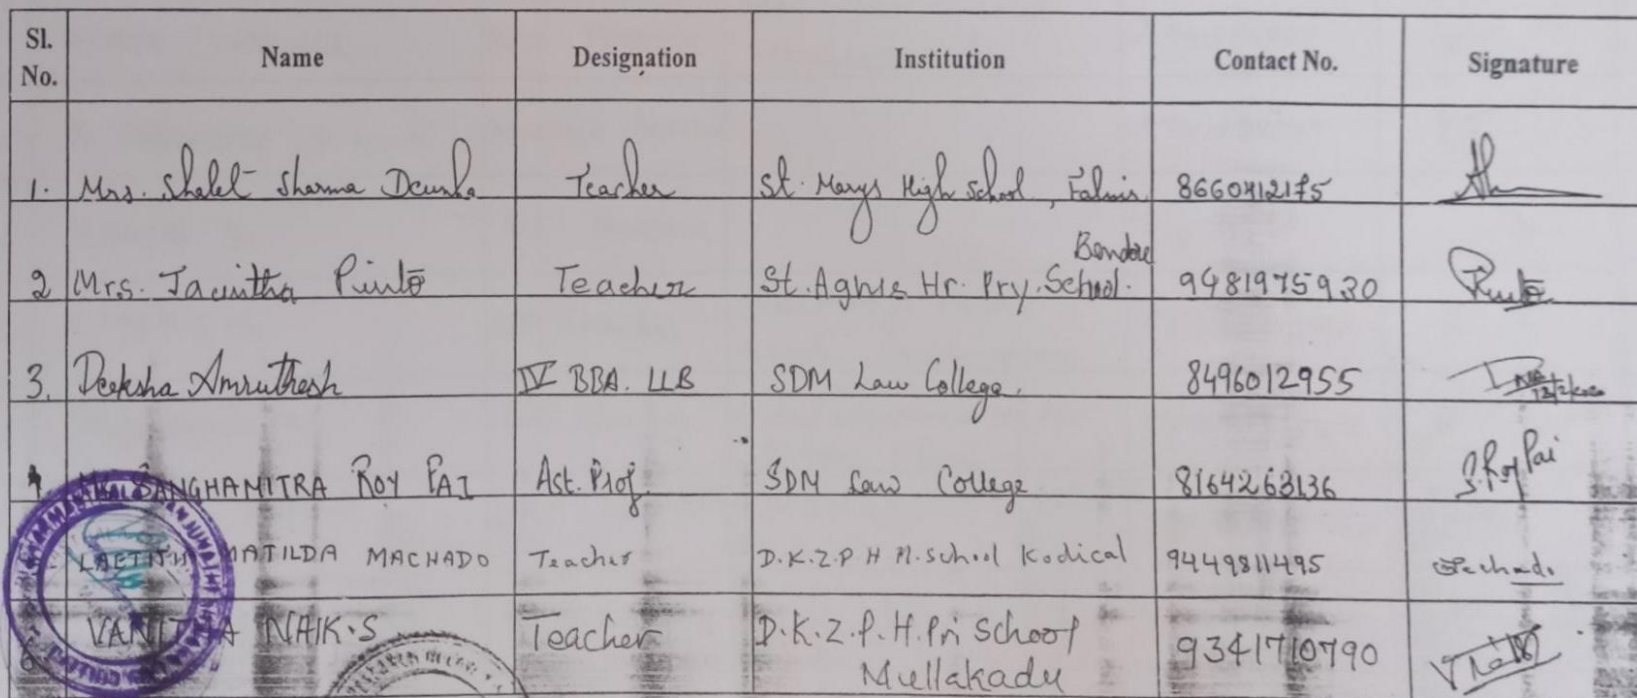 Sl. No. Name Designation Institution Contact No. Signature
1. Mrs. Shalet Sharma Dcunha Teacher St. Marys High School, Falnir 8660412175
2 Mrs. Jacintha Pinto Teacher St. Agnes Hr. Pry. School. Bendore 9481975930 Pinto
3. Deeksha Amruthesh IV BBA. LLB SDM Law College. 8496012955
4 SANGHAMITRA ROY PAI Ast. Prof. SDM Law College 8164263136 S. Roy Pai
MATILDA MACHADO Teacher D.K.Z.P H P. School Kodical 9449811495
6 NAIK.S Teacher D.K.Z.P.H.Pri School Mullakadu 9341710790